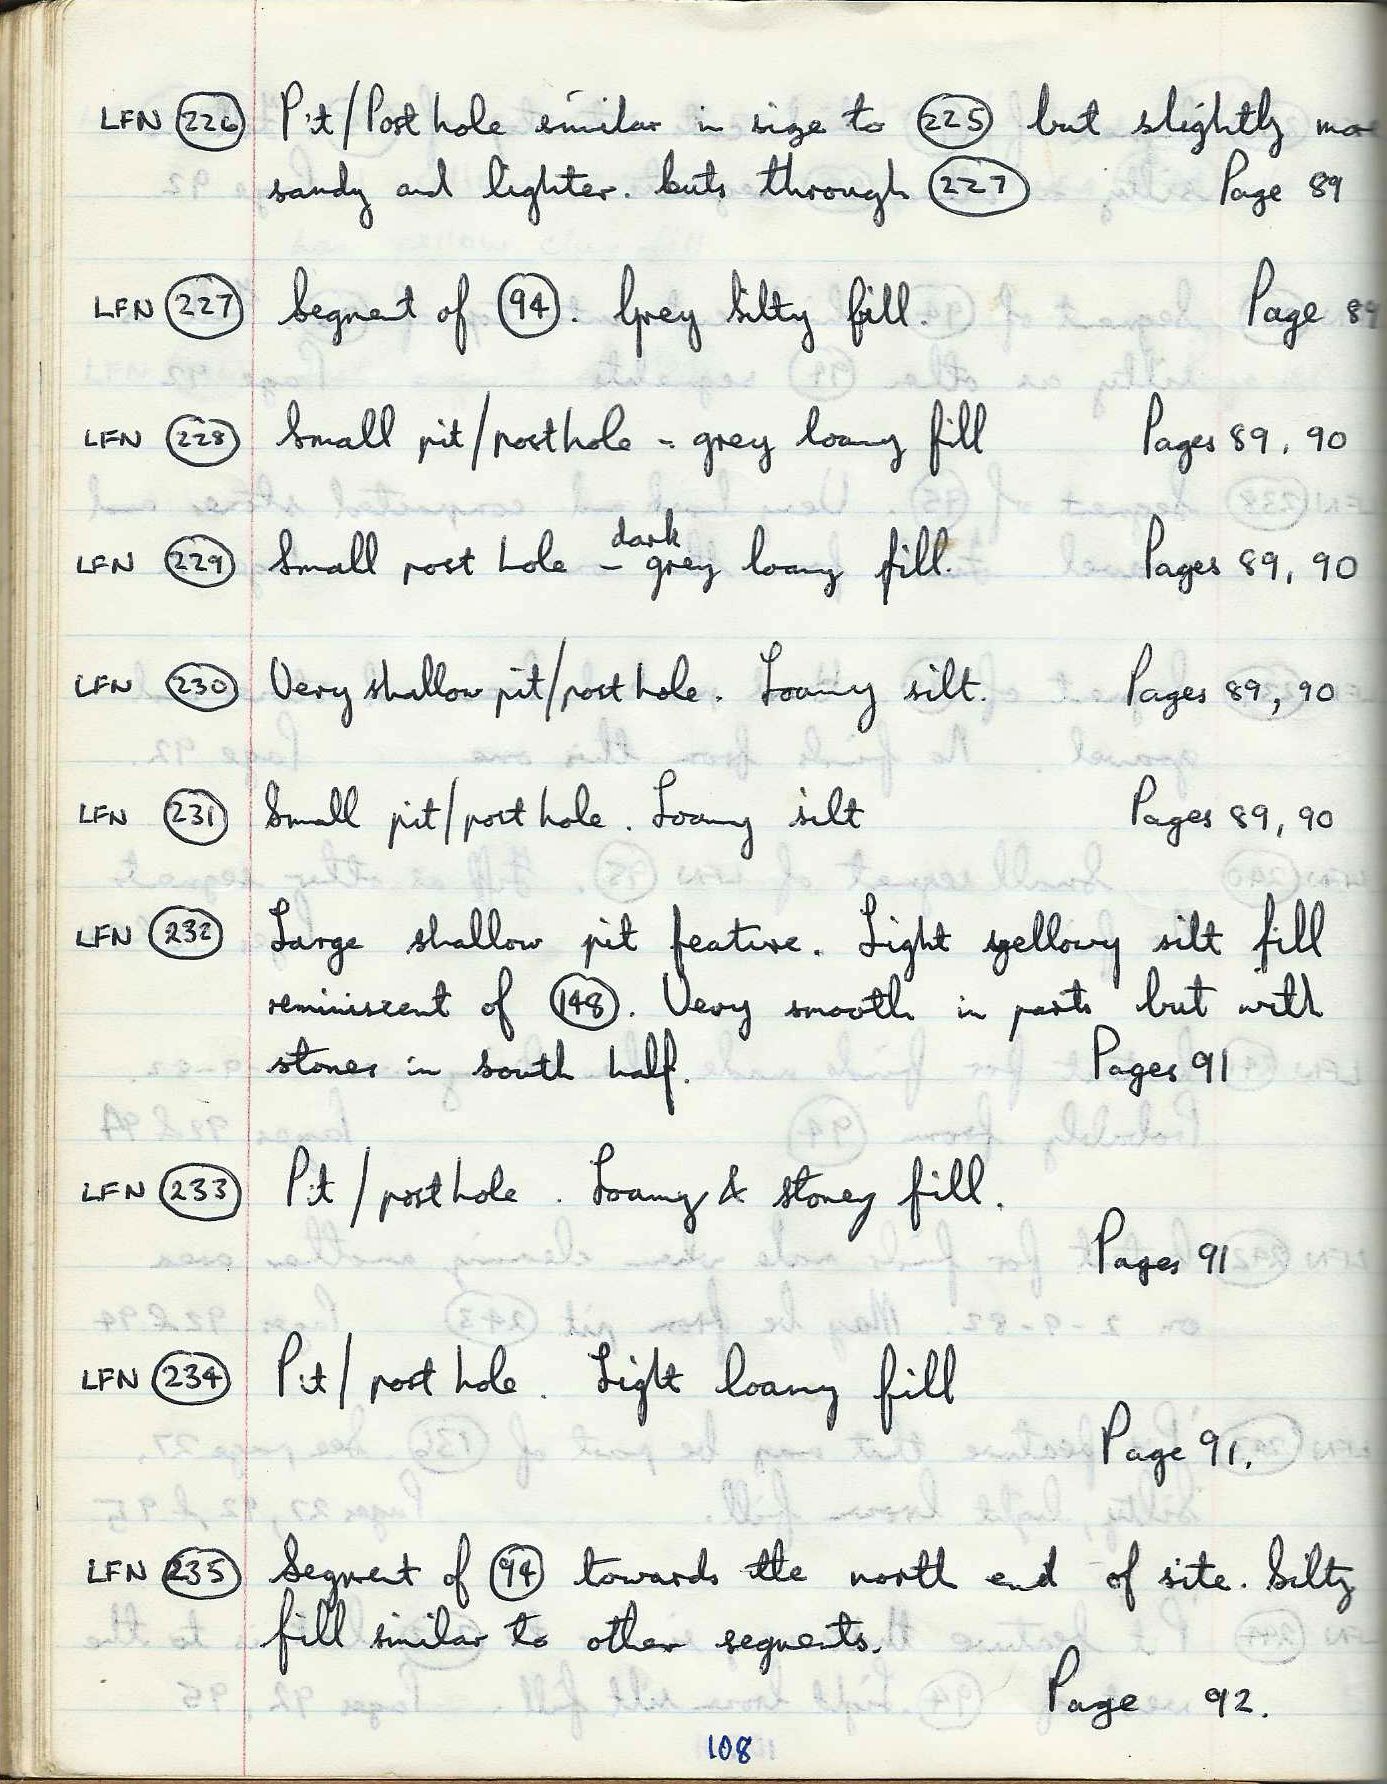 LFN 226 Pit/Post hole similar in size to 225 but slightly more
sandy and lighter. Cuts through 227 Page 89
LFN 227 Segment of 94. Grey Silty fill. Page 89
LFN 228 Small pit/posthole - grey loamy fill Pages 89, 90
LFN 229 Small post hole - dark grey loamy fill. Pages 89, 90
LFN 230 Very shallow pit/post hole. Loamy silt. Pages 89, 90
LFN 231 Small pit/post hole. Loamy silt Pages 89, 90
LFN 232 Large shallow pit feature. Light yellowy silt fill
reminiscent of 148. Very smooth in parts but with
stones in south half. Pages 91
LFN 233 Pit / post hole. Loamy & stoney fill.
Pages 91
LFN 234 Pit / post hole. Light loamy fill
Page 91.
LFN 235 Segment of 94 towards the north end of site. Silty
fill similar to other segments.
Page 92.
108